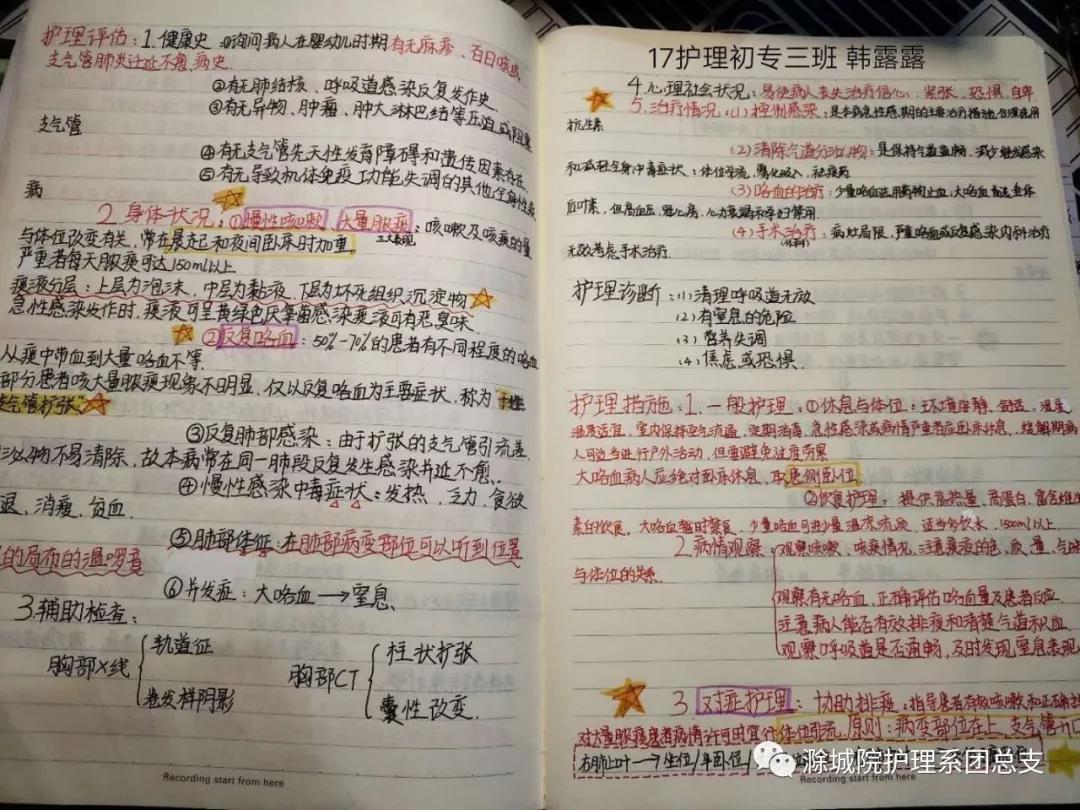 护理评估：1.健康史：①询问病人在婴幼儿时期有无麻疹、百日咳或
支气管肺炎迁延不愈病史.
②有无肺结核、呼吸道感染反复发作史.
③有无异物、肿瘤、肿大淋巴结等压迫或阻塞
支气管
④有无支气管先天性发育障碍和遗传因素存在.
⑤有无导致机体免疫功能失调的其他全身性疾
病
2.身体状况：①慢性咳嗽、大量脓痰：咳嗽及咳痰的量
与体位改变有关，常在晨起和夜间卧床时加重.
严重者每天脓痰可达150ml以上
痰液分层：上层为泡沫，中层为黏液，下层为坏死组织沉淀物
急性感染发作时，痰液可呈黄绿色厌氧菌感染痰液可有恶臭味.
②反复咯血：50%-70%的患者有不同程度的咯血
从痰中带血到大量咯血不等.
部分患者咳大量脓痰现象不明显，仅以反复咯血为主要症状，称为"干性
支气管扩张"
③反复肺部感染：由于扩张的支气管引流差.
分泌物不易清除，故本病常在同一肺段反复发生感染并迁不愈.
④慢性感染中毒症状：发热、乏力、食欲
退、消瘦、贫血.
⑤肺部体征：在肺部病变部位可以听到位置
的局布的湿啰音
⑥并发症：大咯血→窒息.
3.辅助检查：
胸部X线 轨道征 卷发样阴影
胸部CT 柱状扩张 囊性改变.
Recording start from here
17护理初专三班 韩露露
4.心理社会状况：易使病人丧失治疗信心、紧张、恐惧、自卑
5.治疗情况：(1)控制感染：是本病急性感期的主要治疗措施.合理选用
抗生素
(2)清除气道分泌物：是保持气道通畅，减少继发感染
和减轻全身中毒症状.：体位引流，雾化吸入，祛痰药
(3)咯血的治疗：少量咯血选用药物止血，大咯血首选垂体
后叶素，但高血压、冠心病、心力衰竭和孕妇禁用.
(4)手术治疗：病灶局限，严重咯血或反复感染内科治疗
无效考虑手术治疗
护理诊断：(1)清理呼吸道无效
(2)有窒息的危险
(3)营养失调
(4)焦虑或恐惧.
护理措施：1.一般护理：①休息与体位：环境安静、舒适，湿度
温度适宜，室内保持空气流通，定期消毒，急性感染或病情严重者应卧床休息，缓解期病
人可适当进行户外活动，但要避免过度劳累
大咯血病人应绝对卧床休息，取患侧卧位
②饮食护理：提供高热量、高蛋白、富含维生
素的饮食，大咯血暂时禁食，少量咯血可进少量温凉流质，适当多饮水，1500ml以上.
2.病情观察：观察咳嗽、咳痰情况，注意痰液的色、质、量、气味
与体位的关系.
观察有无咯血，正确评估咯血量及患者反应.
注意病人能否有效排痰和清楚气道积血.
观察呼吸道是否通畅，及时发现窒息表现
3.对症护理：协助排痰：指导患者有效咳嗽和正确
对大量脓痰患者病情许可因宜行体位引流.原则：病变部位在上，支气管开口
右肺上叶→坐位/半卧位
滁城院护理系团总支
Recording start from here